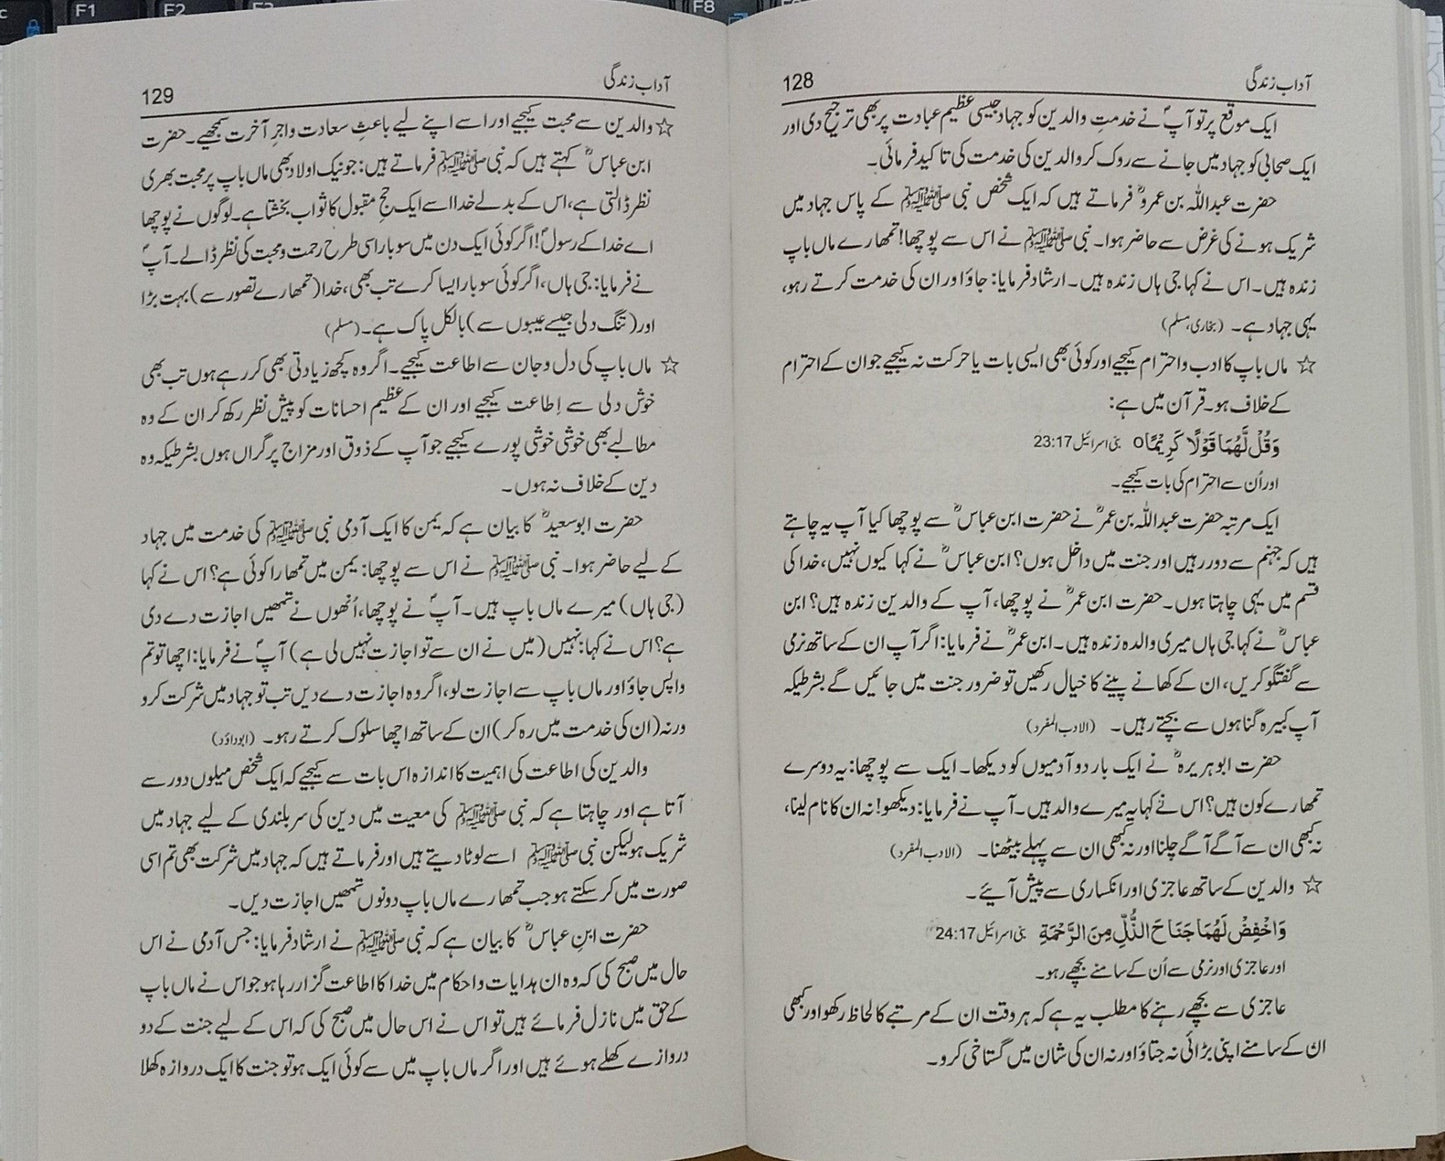 آداب زندگی
128
ایک موقع پر تو آپؐ نے خدمتِ والدین کو جہاد جیسی عظیم عبادت پر بھی ترجیح دی اور
ایک صحابی کو جہاد میں جانے سے روک کر والدین کی خدمت کی تاکید فرمائی۔
حضرت عبداللہ بن عمروؓ فرماتے ہیں کہ ایک شخص نبی ﷺ کے پاس جہاد میں
شریک ہونے کی غرض سے حاضر ہوا۔ نبی ﷺ نے اس سے پوچھا! تمھارے ماں باپ
زندہ ہیں۔ اس نے کہا جی ہاں زندہ ہیں۔ ارشاد فرمایا: جاؤ اور ان کی خدمت کرتے رہو،
یہی جہاد ہے۔ (بخاری، مسلم)
☆ ماں باپ کا ادب و احترام کیجیے اور کوئی بھی ایسی بات یا حرکت نہ کیجیے جو ان کے احترام
کے خلاف ہو۔ قرآن میں ہے:
وَقُلْ لَّهُمَا قَوْلًا كَرِيْمًاo بنی اسرائیل 23:17
اور اُن سے احترام کی بات کیجیے۔
ایک مرتبہ حضرت عبداللہ بن عمرؓ نے حضرت ابن عباسؓ سے پوچھا کیا آپ یہ چاہتے
ہیں کہ جہنم سے دور رہیں اور جنت میں داخل ہوں؟ ابن عباسؓ نے کہا کیوں نہیں، خدا کی
قسم میں یہی چاہتا ہوں۔ حضرت ابن عمرؓ نے پوچھا، آپ کے والدین زندہ ہیں؟ ابن
عباسؓ نے کہا جی ہاں میری والدہ زندہ ہیں۔ ابن عمرؓ نے فرمایا: اگر آپ ان کے ساتھ نرمی
سے گفتگو کریں، ان کے کھانے پینے کا خیال رکھیں تو ضرور جنت میں جائیں گے بشرطیکہ
آپ کبیرہ گناہوں سے بچتے رہیں۔ (الادب المفرد)
حضرت ابوہریرہؓ نے ایک بار دو آدمیوں کو دیکھا۔ ایک سے پوچھا: یہ دوسرے
تمھارے کون ہیں؟ اس نے کہا یہ میرے والد ہیں۔ آپ نے فرمایا: دیکھو! نہ ان کا نام لینا،
نہ کبھی ان سے آگے آگے چلنا اور نہ کبھی ان سے پہلے بیٹھنا۔ (الادب المفرد)
☆ والدین کے ساتھ عاجزی اور انکساری سے پیش آئیے۔
وَاخْفِضْ لَهُمَا جَنَاحَ الذُّلِّ مِنَ الرَّحْمَةِ بنی اسرائیل 24:17
اور عاجزی اور نرمی سے اُن کے سامنے بچھے رہو۔
عاجزی سے بچھے رہنے کا مطلب یہ ہے کہ ہر وقت ان کے مرتبے کا لحاظ رکھو اور کبھی
ان کے سامنے اپنی بڑائی نہ جتاؤ اور نہ ان کی شان میں گستاخی کرو۔
آداب زندگی
129
☆ والدین سے محبت کیجیے اور اسے اپنے لیے باعثِ سعادت و اجرِ آخرت سمجھیے۔ حضرت
ابن عباسؓ کہتے ہیں کہ نبی ﷺ فرماتے ہیں: جو نیک اولاد بھی ماں باپ پر محبت بھری
نظر ڈالتی ہے، اس کے بدلے خدا اسے ایک حج مقبول کا ثواب بخشتا ہے۔ لوگوں نے پوچھا
اے خدا کے رسولؐ! اگر کوئی ایک دن میں سو بار اسی طرح رحمت و محبت کی نظر ڈالے۔ آپؐ
نے فرمایا: جی ہاں، اگر کوئی سو بار ایسا کرے تب بھی، خدا (تمھارے تصور سے) بہت بڑا
اور (تنگ دلی جیسے عیبوں سے) بالکل پاک ہے۔ (مسلم)
☆ ماں باپ کی دل و جان سے اطاعت کیجیے۔ اگر وہ کچھ زیادتی بھی کر رہے ہوں تب بھی
خوش دلی سے اِطاعت کیجیے اور ان کے عظیم احسانات کو پیش نظر رکھ کر ان کے وہ
مطالبے بھی خوشی خوشی پورے کیجیے جو آپ کے ذوق اور مزاج پر گراں ہوں بشرطیکہ وہ
دین کے خلاف نہ ہوں۔
حضرت ابوسعیدؓ کا بیان ہے کہ یمن کا ایک آدمی نبی ﷺ کی خدمت میں جہاد
کے لیے حاضر ہوا۔ نبی ﷺ نے اس سے پوچھا: یمن میں تمھارا کوئی ہے؟ اس نے کہا
(جی ہاں) میرے ماں باپ ہیں۔ آپؐ نے پوچھا، اُنھوں نے تمھیں اجازت دے دی
ہے؟ اس نے کہا: نہیں (میں نے ان سے تو اجازت نہیں لی ہے) آپؐ نے فرمایا: اچھا تو تم
واپس جاؤ اور ماں باپ سے اجازت لو، اگر وہ اجازت دے دیں تب تو جہاد میں شرکت کرو
ورنہ (ان کی خدمت میں رہ کر) ان کے ساتھ اچھا سلوک کرتے رہو۔ (ابوداؤد)
والدین کی اطاعت کی اہمیت کا اندازہ اس بات سے کیجیے کہ ایک شخص میلوں دور سے
آتا ہے اور چاہتا ہے کہ نبی ﷺ کی معیت میں دین کی سربلندی کے لیے جہاد میں
شریک ہو لیکن نبی ﷺ اسے لوٹا دیتے ہیں اور فرماتے ہیں کہ جہاد میں شرکت بھی تم اسی
صورت میں کر سکتے ہو جب تمھارے ماں باپ دونوں تمھیں اجازت دیں۔
حضرت ابنِ عباسؓ کا بیان ہے کہ نبی ﷺ نے ارشاد فرمایا: جس آدمی نے اس
حال میں صبح کی کہ وہ ان ہدایات و احکام میں خدا کا اطاعت گزار رہا ہو جو اس نے ماں باپ
کے حق میں نازل فرمائے ہیں تو اس نے اس حال میں صبح کی کہ اس کے لیے جنت کے دو
دروازے کھلے ہوئے ہیں اور اگر ماں باپ میں سے کوئی ایک ہو تو جنت کا ایک دروازہ کھلا
F1
F2
F3
F8